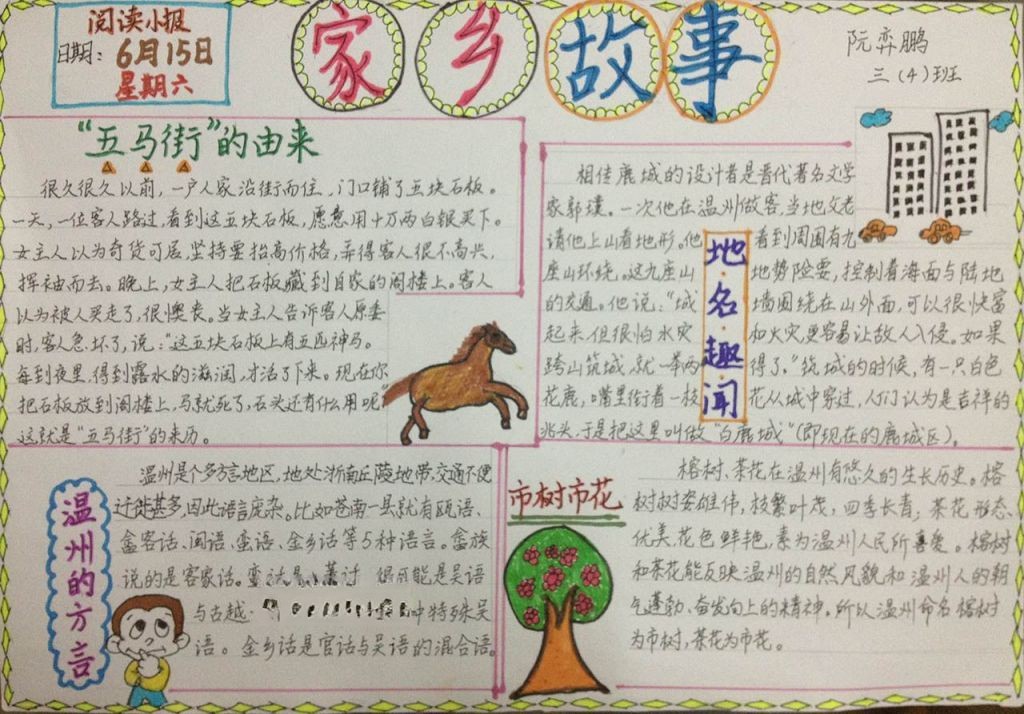 阅读小报
日期：6月15日
星期六
家乡故事
阮弈鹏
三（4）班
“五马街”的由来
很久很久以前，一户人家沿街而住，门口铺了五块石板。
一天，一位客人路过，看到这五块石板，愿意用十万两白银买下。
女主人以为奇货可居，坚持要抬高价格，弄得客人很不高兴，
挥袖而去。晚上，女主人把石板藏到自家的阁楼上。客人
以为被人买走了，很懊丧。当女主人告诉客人原委
时，客人急坏了，说：“这五块石板上有五匹神马。
每到夜里，得到露水的滋润，才活了下来。现在你
把石板放到阁楼上，马就死了，石头还有什么用呢”
这就是“五马街”的来历。
地名趣闻
相传鹿城的设计者是晋代著名文学
家郭璞。一次他在温州做客，当地父老
请他上山看地形。他看到周围有九
座山环绕。这九座山地势险要，控制着海面与陆地
的交通。他说：“城墙围绕在山外面，可以很快富
起来，但很怕水灾和火灾，更容易让敌人入侵。如果
跨山筑城，就一举两得了。”筑城的时候，有一只白色
花鹿，嘴里衔着一枝花从城中穿过，人们认为是吉祥的
兆头，于是把这里叫做“白鹿城”（即现在的鹿城区）。
温州的方言
温州是个多方言地区，地处浙南丘陵地带，交通不便
迁徙甚多，因此语言庞杂。比如苍南一县就有瓯语、
畲客话、闽语、蛮语、金乡话等5种语言。畲族
说的是客家话。蛮话是
可能是吴语
与古越
中特殊吴
语。金乡话是官话与吴语的混合语。
市树市花
榕树、茶花在温州有悠久的生长历史。榕
树树姿雄伟，枝繁叶茂，四季长青，茶花形态
优美，花色鲜艳，素为温州人民所喜爱。榕树
和茶花能反映温州的自然风貌和温州人的朝
气蓬勃、奋发向上的精神。所以温州命名榕树
为市树，茶花为市花。